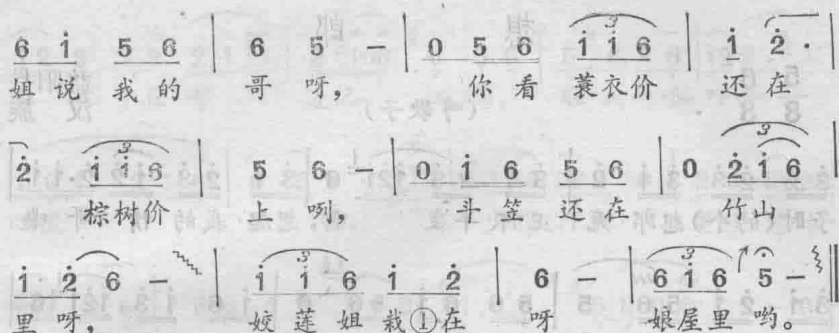 6 i 5 6 | 6 5 – | 0 5 6 i i 6 | i 2 · |
姐 说 我 的 哥 呀， 你 看 蓑 衣 价 还 在
2 i i 6 | 5 6 – | 0 i 6 5 6 | 0 2 i 6 |
棕 树 价 上 咧， 斗 笠 还 在 竹 山
i 2 6 – | i i 6 i 2 | 6 – | 6 i 6 5 – ‖
里 呀， 姣 莲 姐 栽 ① 在 呀 娘 屋 里 哟。